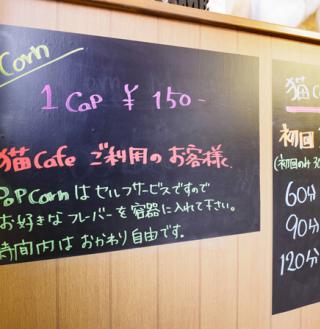 Corn
1 Cap ¥ 150-
猫Cafe ご利用のお客様
PoPCornはセルフサービスですので
お好きなフレーバーを容器に入れて下さい。
時間内はおかわり自由です。
猫Ca
初回
(初回のみ30
60分
90分
120分